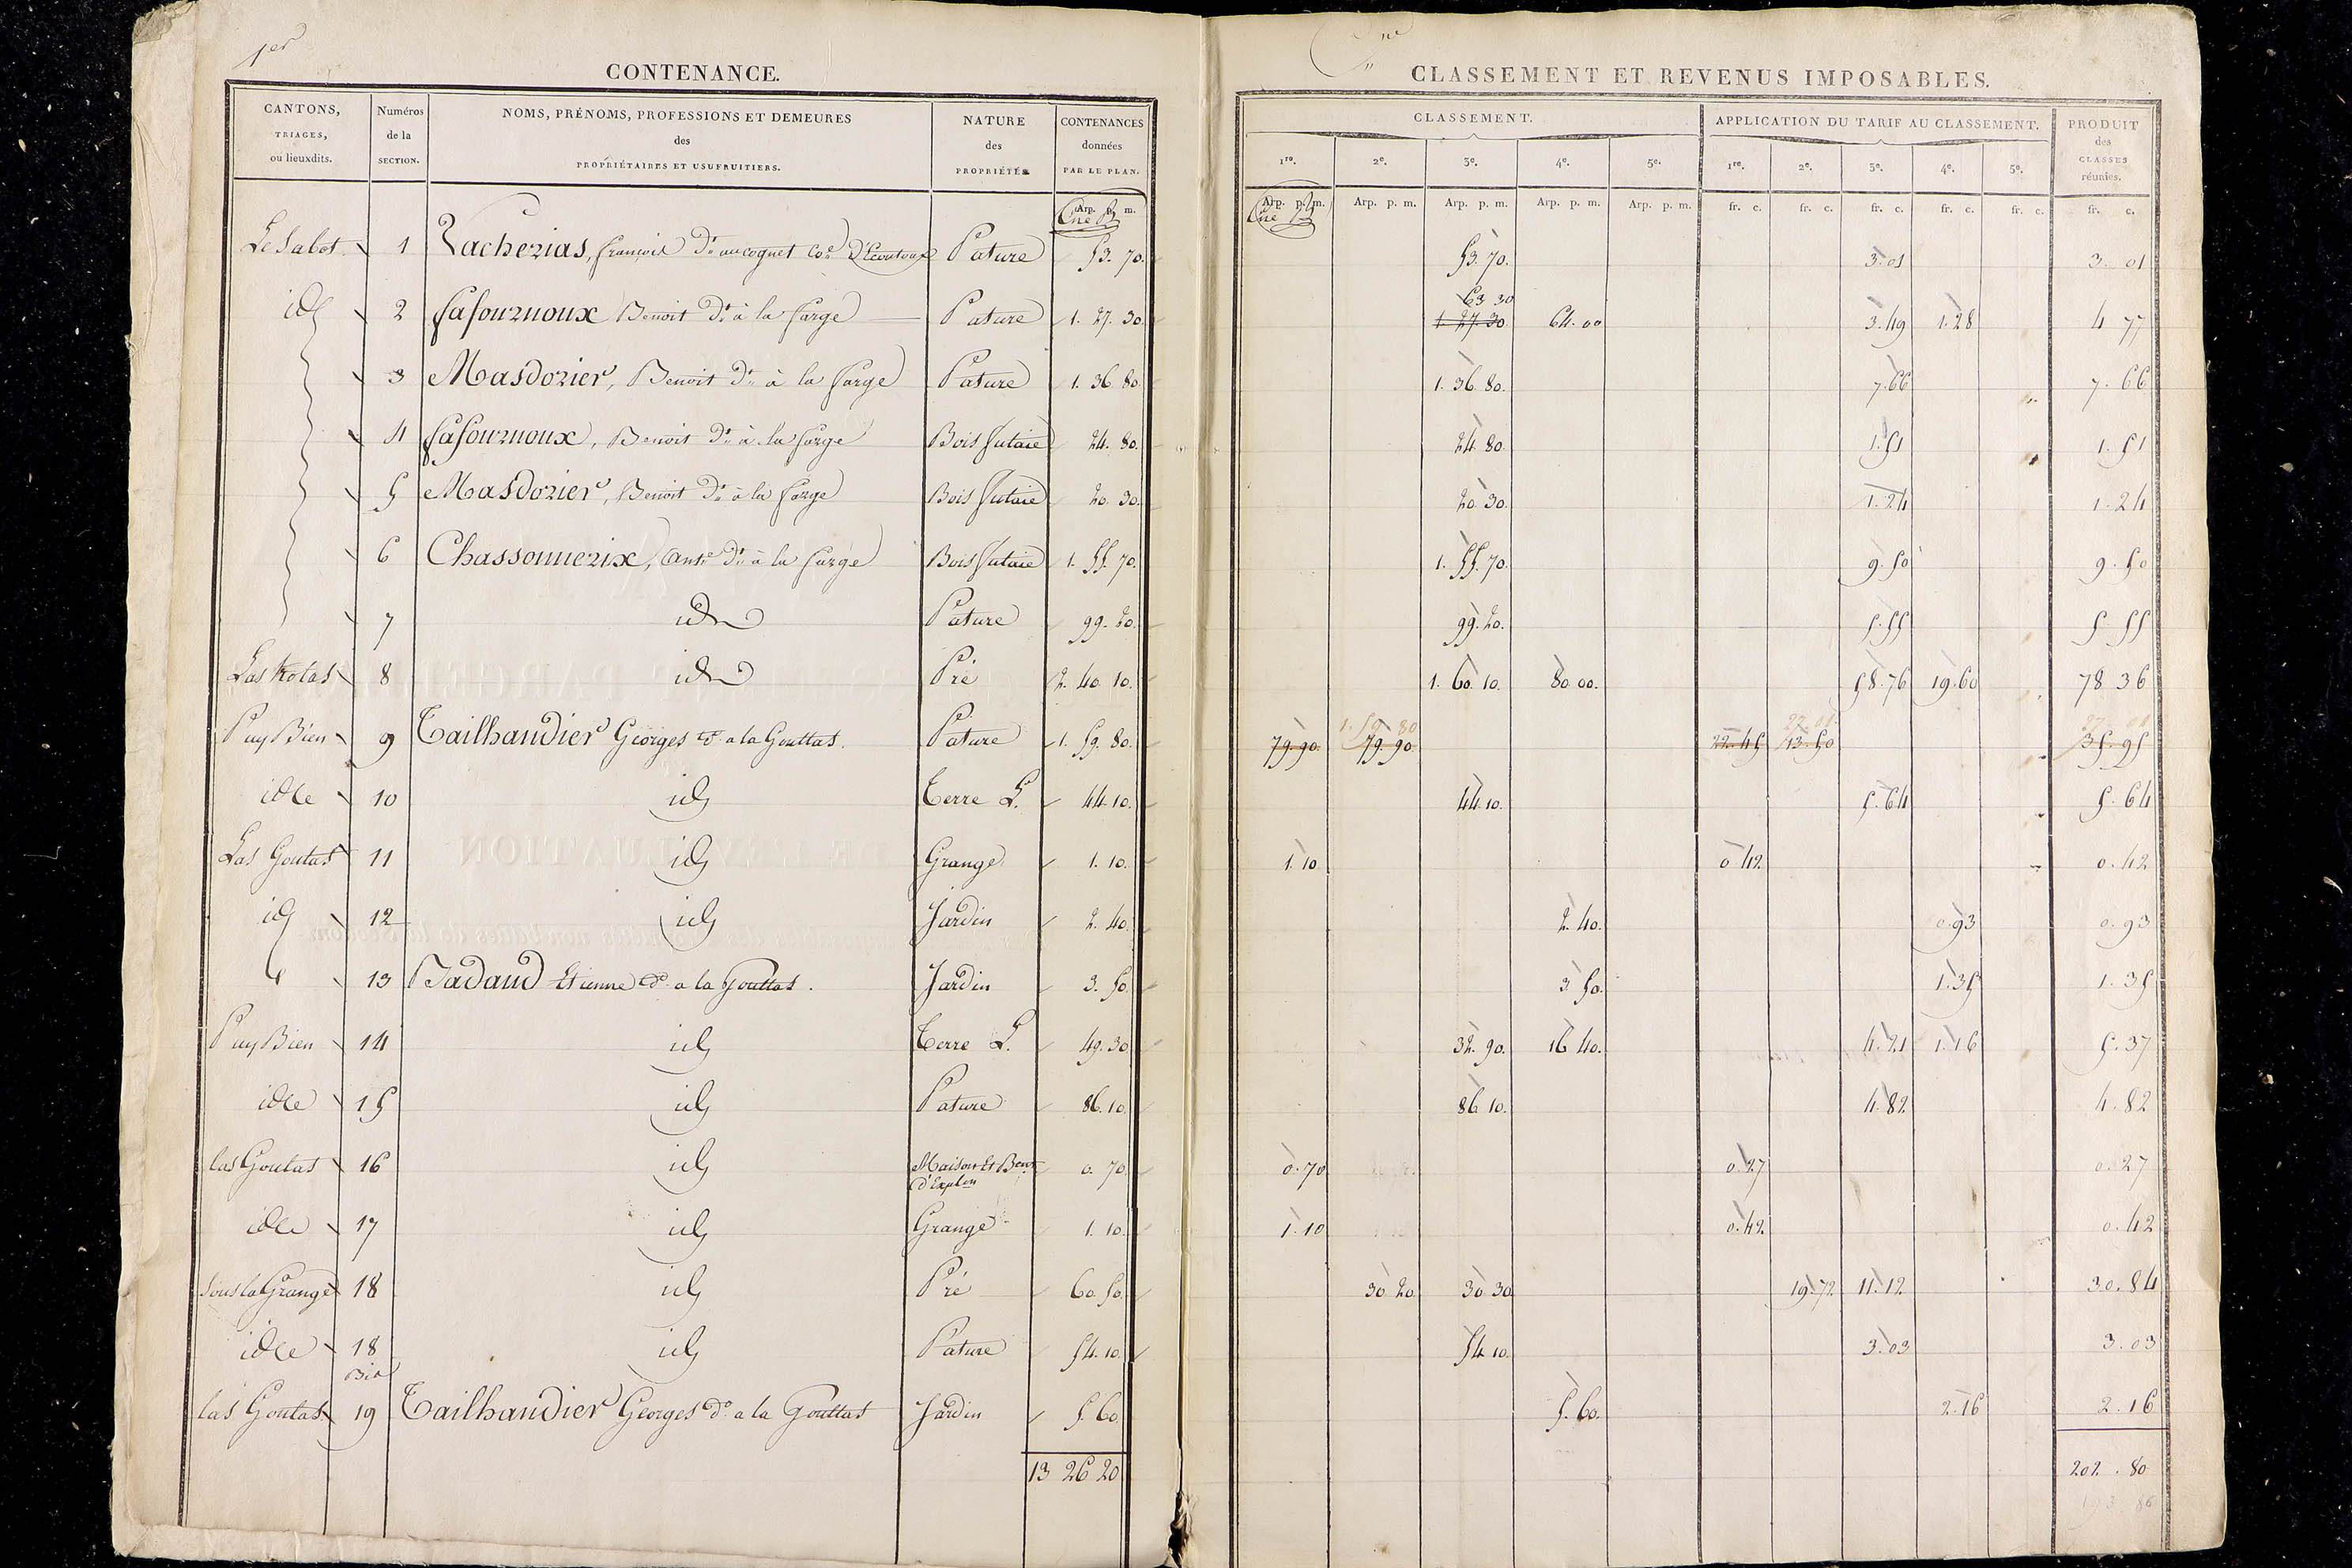 1er
CONTENANCE.
CANTONS, TRIAGES, ou lieuxdits.
Numéros de la SECTION.
NOMS, PRÉNOMS, PROFESSIONS ET DEMEURES des PROPRIÉTAIRES ET USUFRUITIERS.
NATURE des PROPRIÉTÉS
CONTENANCES données PAR LE PLAN.
Arp. p. m.
Le Sabot 1 Zacherias, françois Dt au coguet Pature 53. 70.
id 2 Lafournoux Benoit Dt à la farge Pature 1. 27. 30.
3 Masdorier, Benoit Dt à la farge Pature 1. 36. 80.
4 Lafournoux, Benoit Dt à la farge Bois futaie 24. 80.
5 Masdorier, Benoit Dt à la farge Bois futaie 20. 30.
6 Chassonnerix, Ante Dt à la farge Bois futaie 1. 55. 70.
7 idm Pature 99. 20.
Las Rotas 8 idm Pré 2. 40. 10.
Puy Bien 9 Tailhandier Georges d. a la Gouttas. Pature 1. 59. 80.
idem 10 id Terre L. 44. 10.
Las Goutas 11 id Grange 1. 10.
id 12 id Jardin 2. 40.
13 Badaud Etienne d. a la Gouttas. Jardin 3. 50.
Puy Bien 14 id Terre L. 49. 30
idem 15 id Pature 86. 10.
las Goutas 16 id Maison Et Bent d'Explon 0. 70.
idem 17 id Grange 1. 10.
Sous la Grange 18 id Pré 60. 50.
idem 18 Bis id Pature 54. 10.
las Goutas 19 Tailhandier Georges d. a la Gouttas Jardin 5. 60.
13 26 20
CLASSEMENT ET REVENUS IMPOSABLES.
CLASSEMENT.
APPLICATION DU TARIF AU CLASSEMENT.
PRODUIT des CLASSES réunies.
1re. 2e. 3e. 4e. 5e. 1re. 2e. 3e. 4e. 5e.
Arp. p. m. Arp. p. m. Arp. p. m. Arp. p. m. Arp. p. m. fr. c. fr. c. fr. c. fr. c. fr. c. fr. c.
53. 70. 3. 01 3. 01
63 30
1. 27. 30 64. 00 3. 49 1. 28 4 77
1. 36. 80. 7. 66 7. 66
24. 80. 1. 51 1. 51
20. 30. 1. 24 1. 24
1. 55. 70. 9. 50 9. 50
99. 20. 5. 55 5. 55
1. 60. 10. 80. 00. 58. 76 19. 60 78 36
1. 59. 80 22. 01
79. 90. 79. 90. 22. 45 13. 50 35. 95
44. 10. 5. 64 5. 64
1. 10 0. 42 0. 42
2. 40. 0. 93 0. 93
3. 50. 1. 35 1. 35
32. 90. 16 40. 4. 21 1. 16 5. 37
86 10. 4. 82 4. 82
0. 70 0. 27 0. 27
1. 10 0. 42 0. 42
30 20 30 30 19. 72 11. 12 30. 84
54 10. 3. 03 3. 03
5. 60. 2. 16 2. 16
202. 80